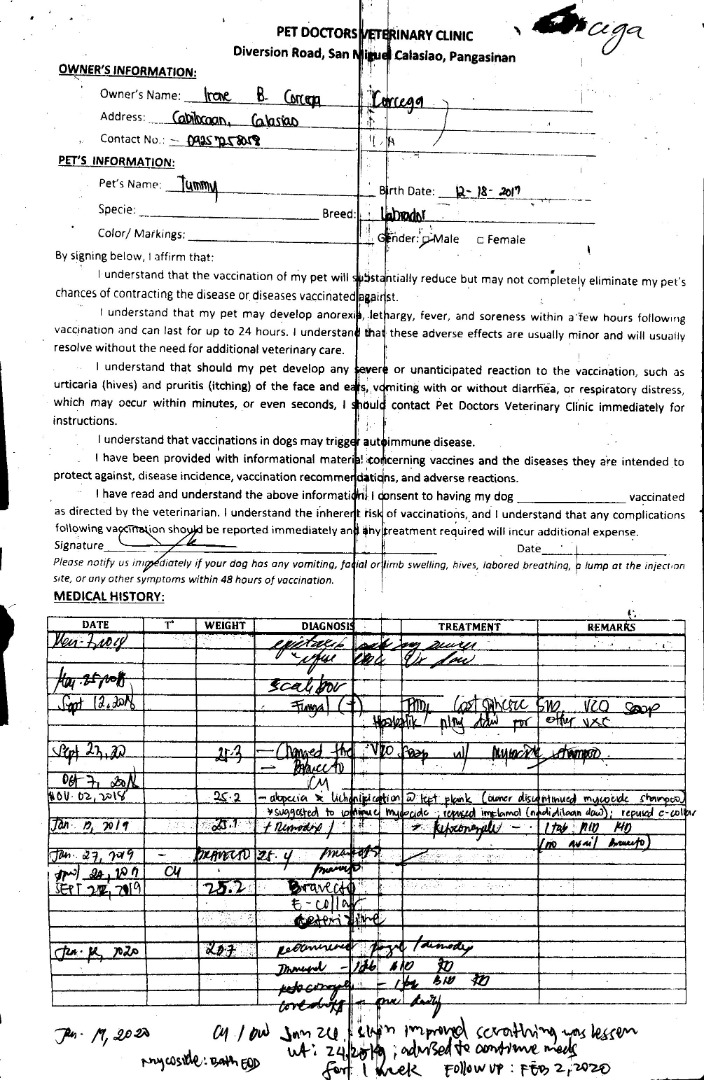 cega
PET DOCTORS VETERINARY CLINIC
Diversion Road, San Miguel Calasiao, Pangasinan
OWNER'S INFORMATION:
Owner's Name: Irene B. Corcega Corcega
Address: Cabilocaan, Calasiao
Contact No.:
PET'S INFORMATION:
Pet's Name: Tummy Birth Date: 12-18-2017
Specie: Breed: Labrador
Color/ Markings: Gender: Male Female
By signing below, I affirm that:
I understand that the vaccination of my pet will substantially reduce but may not completely eliminate my pet's
chances of contracting the disease or diseases vaccinated against.
I understand that my pet may develop anorexia, lethargy, fever, and soreness within a few hours following
vaccination and can last for up to 24 hours. I understand that these adverse effects are usually minor and will usually
resolve without the need for additional veterinary care.
I understand that should my pet develop any severe or unanticipated reaction to the vaccination, such as
urticaria (hives) and pruritis (itching) of the face and ears, vomiting with or without diarrhea, or respiratory distress,
which may occur within minutes, or even seconds, I should contact Pet Doctors Veterinary Clinic immediately for
instructions.
I understand that vaccinations in dogs may trigger autoimmune disease.
I have been provided with informational material concerning vaccines and the diseases they are intended to
protect against, disease incidence, vaccination recommendations, and adverse reactions.
I have read and understand the above information. I consent to having my dog vaccinated
as directed by the veterinarian. I understand the inherent risk of vaccinations, and I understand that any complications
following vaccination should be reported immediately and any treatment required will incur additional expense.
Signature Date
Please notify us immediately if your dog has any vomiting, facial or limb swelling, hives, labored breathing, a lump at the injection
site, or any other symptoms within 48 hours of vaccination.
MEDICAL HISTORY:
DATE T° WEIGHT DIAGNOSIS TREATMENT REMARKS
epistaxis
May 25, 2018 scalibor
Sept 12, 2018 Fungal (+) VCO soap
daw for other vxc
Sept 23, 20 25.3 - Changed the VCO soap w/ mycocide shampoo
- Bravecto
Oct 7, 2018 CM
NOV. 02, 2018 25.2 - alopecia & lichenification @ left flank (owner discontinued mycocide shampoo
*suggested to continue mycocide; refused implamol (nadidilaan daw); refused e-collar
Jan. 13, 2019 25.1 + Demodex/ Ketoconazole - 1 tab BID
(no avail Bravecto)
Jan. 27, 2019 - BRAVECTO 25.4
April 20, 2019 CM
SEPT 22, 2019 25.2 Bravecto
E-collar
Cetirizine
Jan. 12, 2020 recommend fungal / demodex
Immunol - 1 tab BID
ketoconazole - 1 tab BID
- once daily
Jan. 19, 2020 CM / BW Jan 26; skin improved scratching was lessen
wt: 24.20kg; advised to continue meds
Mycocide: Bath EOD for 1 week Follow up: FEB 2, 2020